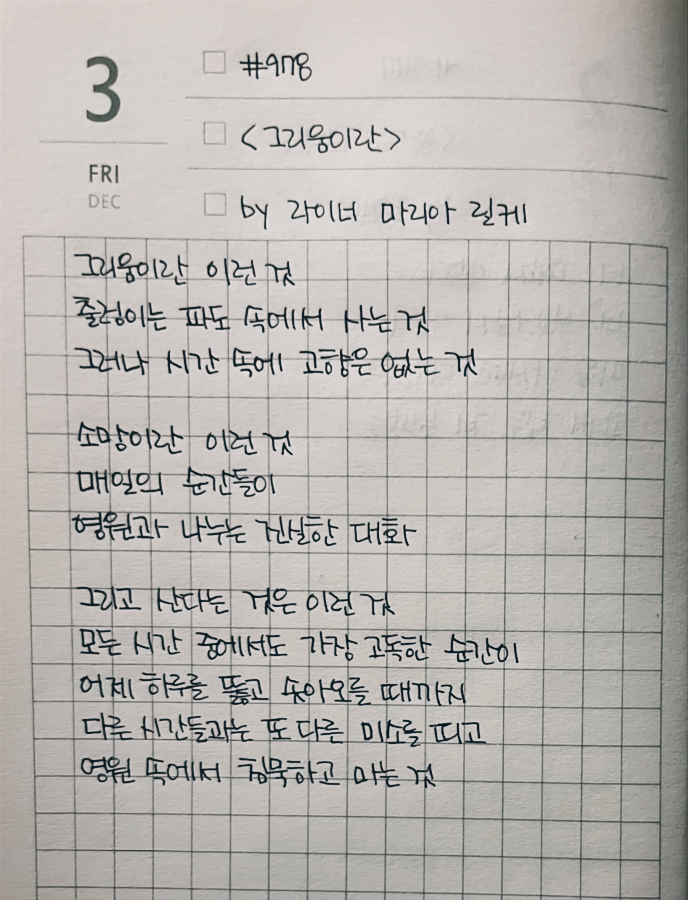 3
FRI
DEC
#978
<그리움이란>
by 라이너 마리아 릴케
그리움이란 이런 것
출렁이는 파도 속에서 사는 것
그러나 시간 속에 고향은 없는 것
소망이란 이런 것
매일의 순간들이
영원과 나누는 진실한 대화
그리고 산다는 것은 이런 것
모든 시간 중에서도 가장 고독한 순간이
어제 하루를 뚫고 솟아오를 때까지
다른 시간들과는 또 다른 미소를 띠고
영원 속에서 침묵하고 마는 것